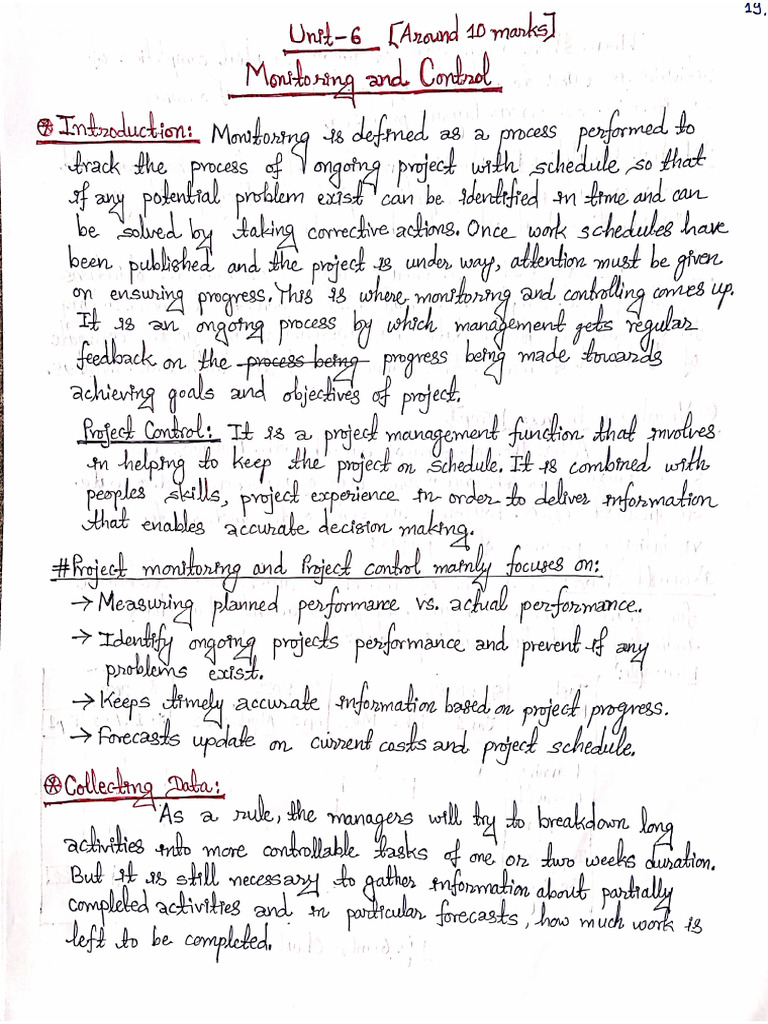 19.
Unit-6 [Around 10 marks]
Monitoring and Control
⊛ Introduction: Monitoring is defined as a process performed to
track the process of ongoing project with schedule so that
if any potential problem exist can be identified in time and can
be solved by taking corrective actions. Once work schedules have
been published and the project is under way, attention must be given
on ensuring progress. This is where monitoring and controlling comes up.
It is an ongoing process by which management gets regular
feedback on the process being progress being made towards
achieving goals and objectives of project.
Project Control: It is a project management function that involves
in helping to keep the project on schedule. It is combined with
peoples skills, project experience in order to deliver information
that enables accurate decision making.
#Project monitoring and Project control mainly focuses on:
→ Measuring planned performance vs. actual performance.
→ Identify ongoing projects performance and prevent if any
problems exist.
→ Keeps timely accurate information based on project progress.
→ Forecasts update on current costs and project schedule.
⊛ Collecting Data:
As a rule, the managers will try to breakdown long
activities into more controllable tasks of one or two weeks duration.
But it is still necessary to gather information about partially
completed activities and in particular forecasts, how much work is
left to be completed.